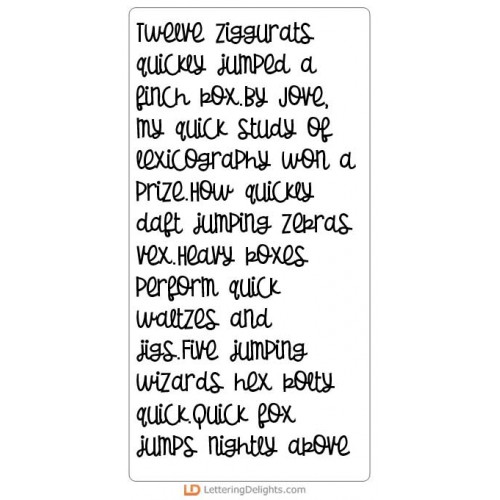 Twelve ziggurats
quickly jumped a
finch box.By Jove,
my quick study of
lexicography won a
prize.How quickly
daft jumping zebras
vex.Heavy boxes
perform quick
waltzes and
jigs.Five jumping
wizards hex bolty
quick.Quick fox
jumps nightly above
LD LetteringDelights.com